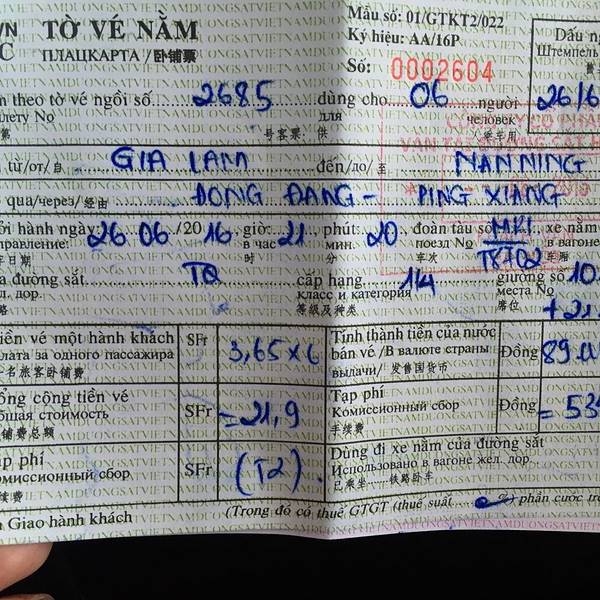 VN TỜ VÉ NẰM
C ПЛАЦКАРТА / 卧铺票
Mẫu số: 01/GTKT2/022
Ký hiệu: AA/16P
Số: 0002604
Dấu ng
Штемпель
m theo tờ vé ngồi số 2685 dùng cho 06 người 26/6
илету No 号客票: для 供 человек
từ/от/自 GIA LAM đến/до/至 NANNING
qua/через/经由 DONG DANG - PING XIANG
ởi hành ngày 26 06 /20 16 giờ: 21 phút: 20 đoàn tàu số MR1 xe nằm
правление: в час мин. поезд No T8702 в вагоне
年日期 时 分 车次 车厢
a đường sắt TQ cấp hạng 1/4 giường số 10
ел. дор. класс и категория места No
路 等级及种类 席位
iền vé một hành khách SFr 3,65 x 6 Tính thành tiền của nước
лата за одного пассажира bán vé /В валюте страны Đồng 89.
一名旅客卧铺费 выдачи/ 发售国货币
ổng cộng tiền vé SFr = 21,9 Tạp phí
бщая стоимость Комиссионный сбор Đồng = 53
铺费总额 手续费
ạp phí SFr (T2) Dùng đi xe nằm của đường sắt
омиссионный сбор Использовано в вагоне жел. дор.
续费 已乘坐......铁路卧车
n Giao hành khách (Trong đó có thuế GTGT (thuế suất %) phần cước tro